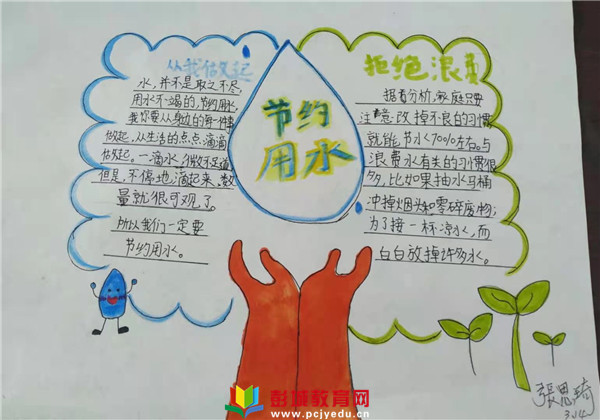 从我做起
水，并不是取之不尽，
用水不竭的，节约用水，
我你要从身边的每一件事
做起，从生活的点点滴滴
做起。一滴水，微不足道
但是，不停地滴起来，数
量就很可观了。
所以我们一定要
节约用水。
节约
用水
拒绝浪费
据有分析，家庭只要
注意改掉不良的习惯
就能节水70%左右。与
浪费水有关的习惯很
多，比如果抽水马桶
冲掉烟和零碎废物；
为了接一杯凉水，而
白白放掉许多水。
張思琦
彭城教育网
www.pcjyedu.cn